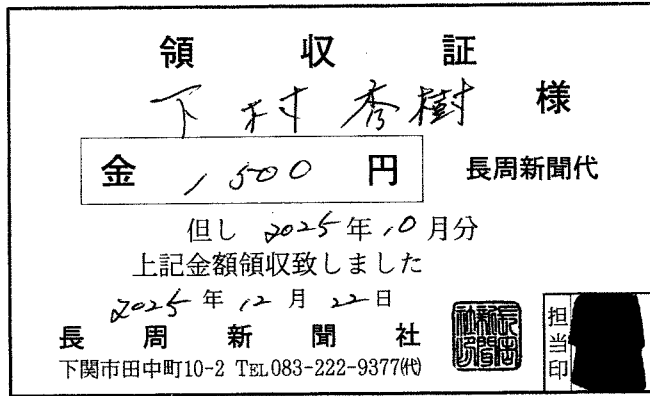 領収証
下村秀樹 様
金 1500 円 長周新聞代
但し 2025年10月分
上記金額領収致しました
2025年12月22日
長周新聞社
下関市田中町10-2 TEL083-222-9377㈹
長周新聞社印
担当印